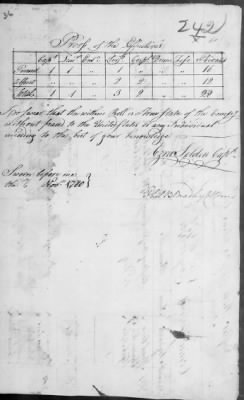 36
242
Proof of the Effectives
Capt Lieut Ens Serjt Corpl Drum Fife Privates
Present 1 1 " 1 " " " 10
Absent " " " 2 2 " " 12
Total 1 1 " 3 2 " " 22
I do swear that the within Roll is a true state of the Company
without fraud to the United States or any Individual
according to the best of your knowledge
Selden Capt
Sworn before me
this Novr 1780